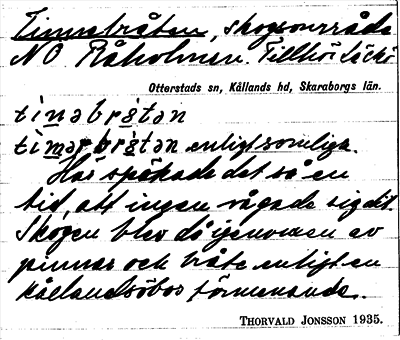 Timmebråten, skogsområde
NO Råholmen. Tillhör Läckö
Otterstads sn, Kållands hd, Skaraborgs län.
tinabrǫ̊tan
timarbrǫ̊tan enligt somliga.
Här spökade det så en
tid, att ingen vågade sig dit.
Skogen blev då igenvuxen av
pinnar och bråte enligt en
kållandsöbos förmenande.
THORVALD JONSSON 1935.